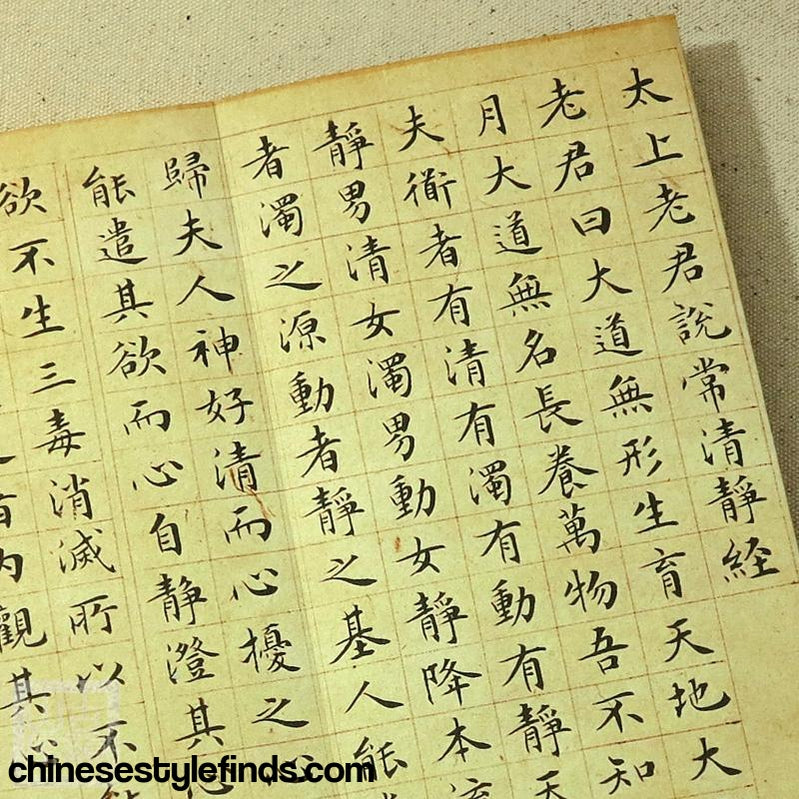 太上老君說常清靜經
老君曰大道無形生育天地大
月大道無名長養萬物吾不知
夫衜者有清有濁有動有靜天
靜男清女濁男動女靜降本流
者濁之源動者靜之基人能
歸夫人神好清而心擾之心
能遣其欲而心自靜澄其心
欲不生三毒消滅所以不能
者内觀其心
chinesestylefinds.com